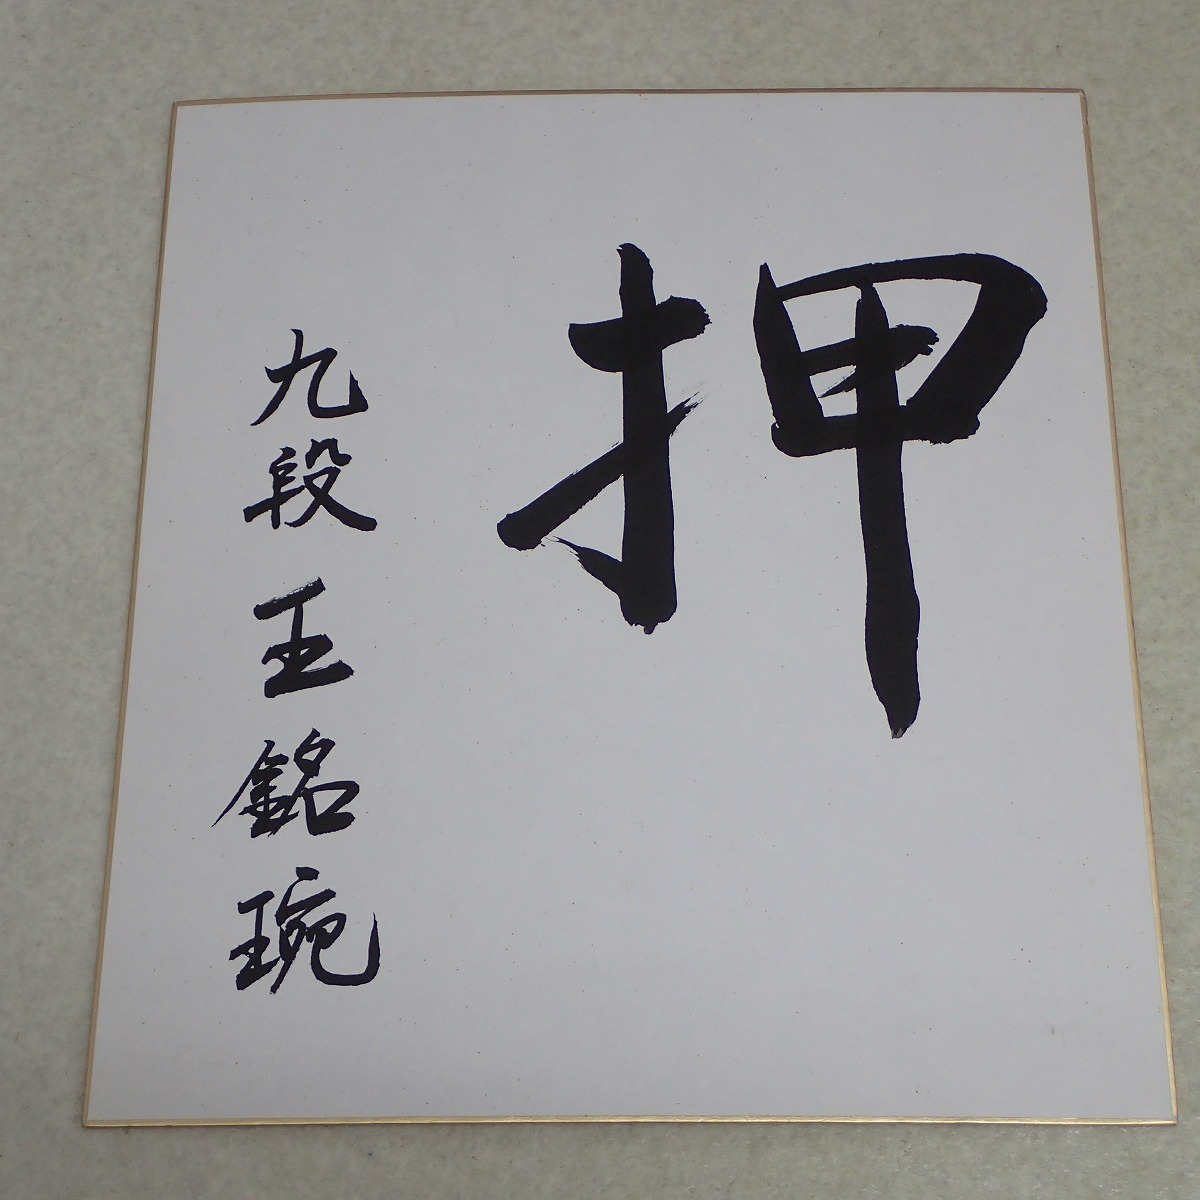 押
九段 王銘琬